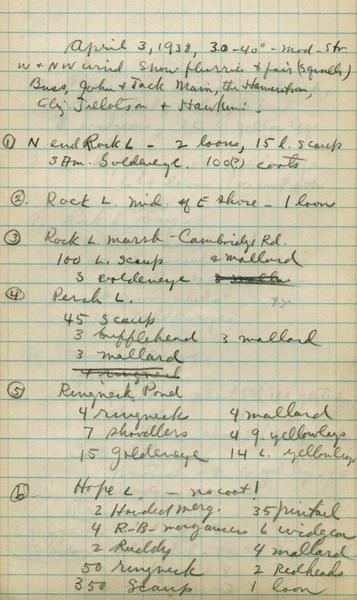 April 3, 1938, 30-40° - Mod - Str.
W + NW wind Snow flurries + fair (Squalls)
Buss, John + Jack Main, the Hamerstroms,
Ely Tillotson + Hawkins.
① N end Rock L - 2 loons, 15 l. scaup
3 Am. Goldeneye. 100(?) coots
② Rock L. mid. of E shore - 1 loon
③ Rock L. marsh - Cambridge Rd.
100 L. scaup 2 mallard
3 Goldeneye
④ Perch L.
45 scaup
3 bufflehead 3 mallard
3 mallard
4 ringneck
⑤ Ringneck Pond
4 ringneck 4 mallard
7 shovellers 4 g. yellowlegs
15 goldeneye 14 L. yellowlegs
⑥ Hope L. - no coot!
2 Hooded merg. 35 pintail
4 R-B-mergansers 6 widgeon
2 Ruddy 4 mallard
50 ringneck 2 Redheads
350 Scaup 1 loon